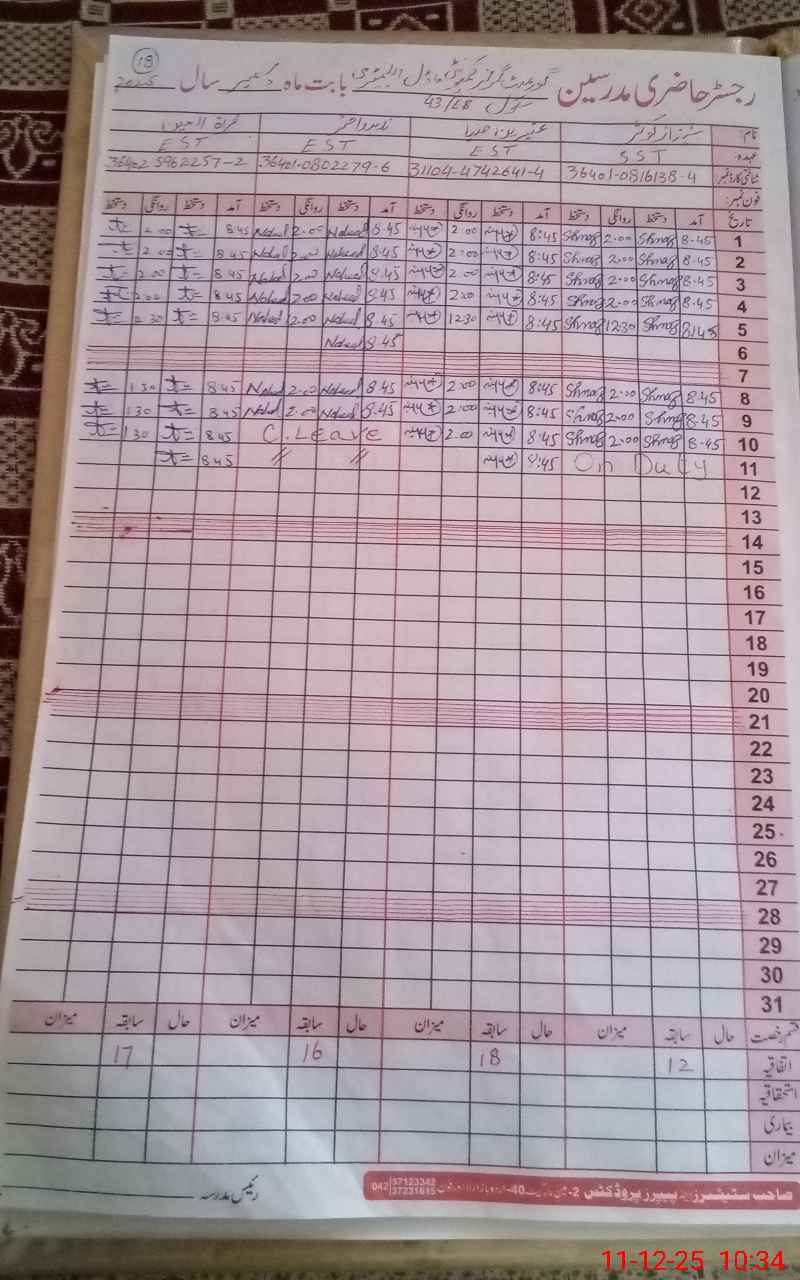 18
رجسٹر حاضری مدرسین گورنمنٹ گرلز کمیونٹی ماڈل ایلیمنٹری بابت ماہ دسمبر سال 2025
سکول 43/EB
نام شہناز کوثر
عہدہ: SST EST EST EST
شناختی کارڈ نمبر 36401-0816138-4 31104-4742641-4 36401-0802279-6 36402 5962257-2
فون نمبر:
تاریخ آمد دستخط روانگی دستخط آمد دستخط روانگی دستخط آمد دستخط روانگی دستخط آمد دستخط روانگی دستخط
1 8-45 Shnaz 2.00 Shnaz 8:45 2.00 8.45 Naheed 2.00 Naheed 8.45 2.00
2 8-45 Shnaz 2.00 Shnaz 8:45 2:00 8.45 Naheed 2.00 Naheed 8.45 2.00
3 8-45 Shnaz 2.00 Shnaz 8:45 2.00 8.45 Naheed 2.00 Naheed 8.45 2.00
4 8-45 Shnaz 2.00 Shnaz 8:45 2.00 8.45 Naheed 2.00 Naheed 8.45 2.00
5 8:45 Shnaz 12:30 Shnaz 8:45 12:30 8.45 Naheed 2.00 Naheed 8.45
6 8.45 Naheed
7
8 8-45 Shnaz 2.00 Shnaz 8:45 2.00 8.45 Naheed 2.00 Naheed 8.45 1 30
9 8-45 Shnaz 2.00 Shnaz 8:45 2.00 8.45 Naheed 2.00 Naheed 8.45 1 30
10 8-45 Shnaz 2.00 Shnaz 8:45 2.00 C.Leave 8.45 1 30
11 On Duty 8:45 // // 8.45
12
13
14
15
16
17
18
19
20
21
22
23
24
25
26
27
28
29
30
31
قسم رخصت حال سابقہ میزان حال سابقہ میزان حال سابقہ میزان حال سابقہ میزان
اتفاقیہ 12 18 16 17
استحقاقیہ
بیماری
میزان
صاحب سٹیشنرز اینڈ پیپرز پروڈکٹس 042 37123342 37231615
رئیس مدرسہ
11-12-25 10:34